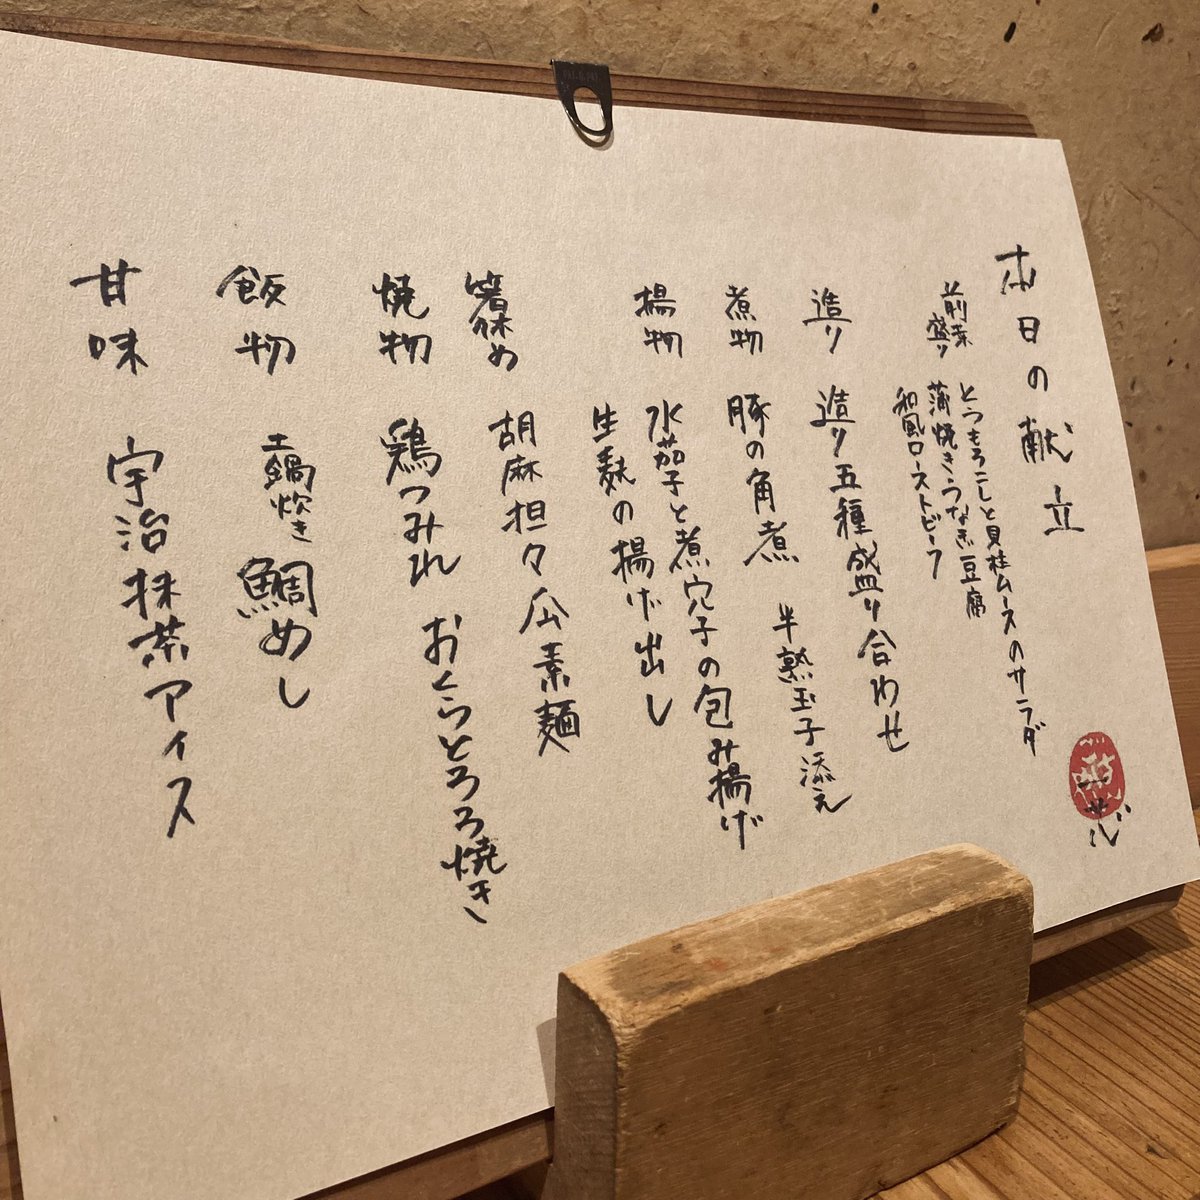 本日の献立
前菜盛り
とうもろこしと貝柱ムースのサラダ
蒲焼きうなぎ豆腐
和風ローストビーフ
造り 造り五種盛り合わせ
煮物 豚の角煮 半熟玉子添え
揚物 水茄子と煮穴子の包み揚げ
生麩の揚げ出し
箸休め 胡麻担々瓜素麺
焼物 鶏つみれ おくらとろろ焼き
飯物 土鍋炊き鯛めし
甘味 宇治抹茶アイス